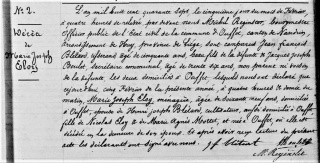 N.° 2.
Décès
de
Marie Joseph
Eloy
L'an mil huit cent quarante sept, le cinquième jour du mois de Février,
à quatre heures de relevée par devant nous Michel Reginster, Bourgmestre
Officier public de l'Etat civil de la commune d'Ouffet, canton de Nandrin,
Arrondissement de Huy, province de Liège, sont comparus Jean François
Blérot âgé de cinquante ans, de la défunte et Jacques Joseph
secrétaire communal, âgé de trente six ans, non parent ni voisin
de la défunte, les deux domiciliés à Ouffet, lesquels nous ont déclaré que
cejourd'hui, cinq Février de la présente année, à quatre heures du
matin, Marie Joseph Eloy, ménagère, âgée de soixante ans, domiciliée
à Ouffet, épouse de Joseph Blérot, cultivateur, aussi domicilié à Ouffet,
fille de Nicolas Eloy et de Marie Agnès, est née à Ouffet, où elle est
décédée en la demeure de son époux. Et après avoir reçu lecture du présent
acte les déclarants ont signé avec nous.
M. Reginster